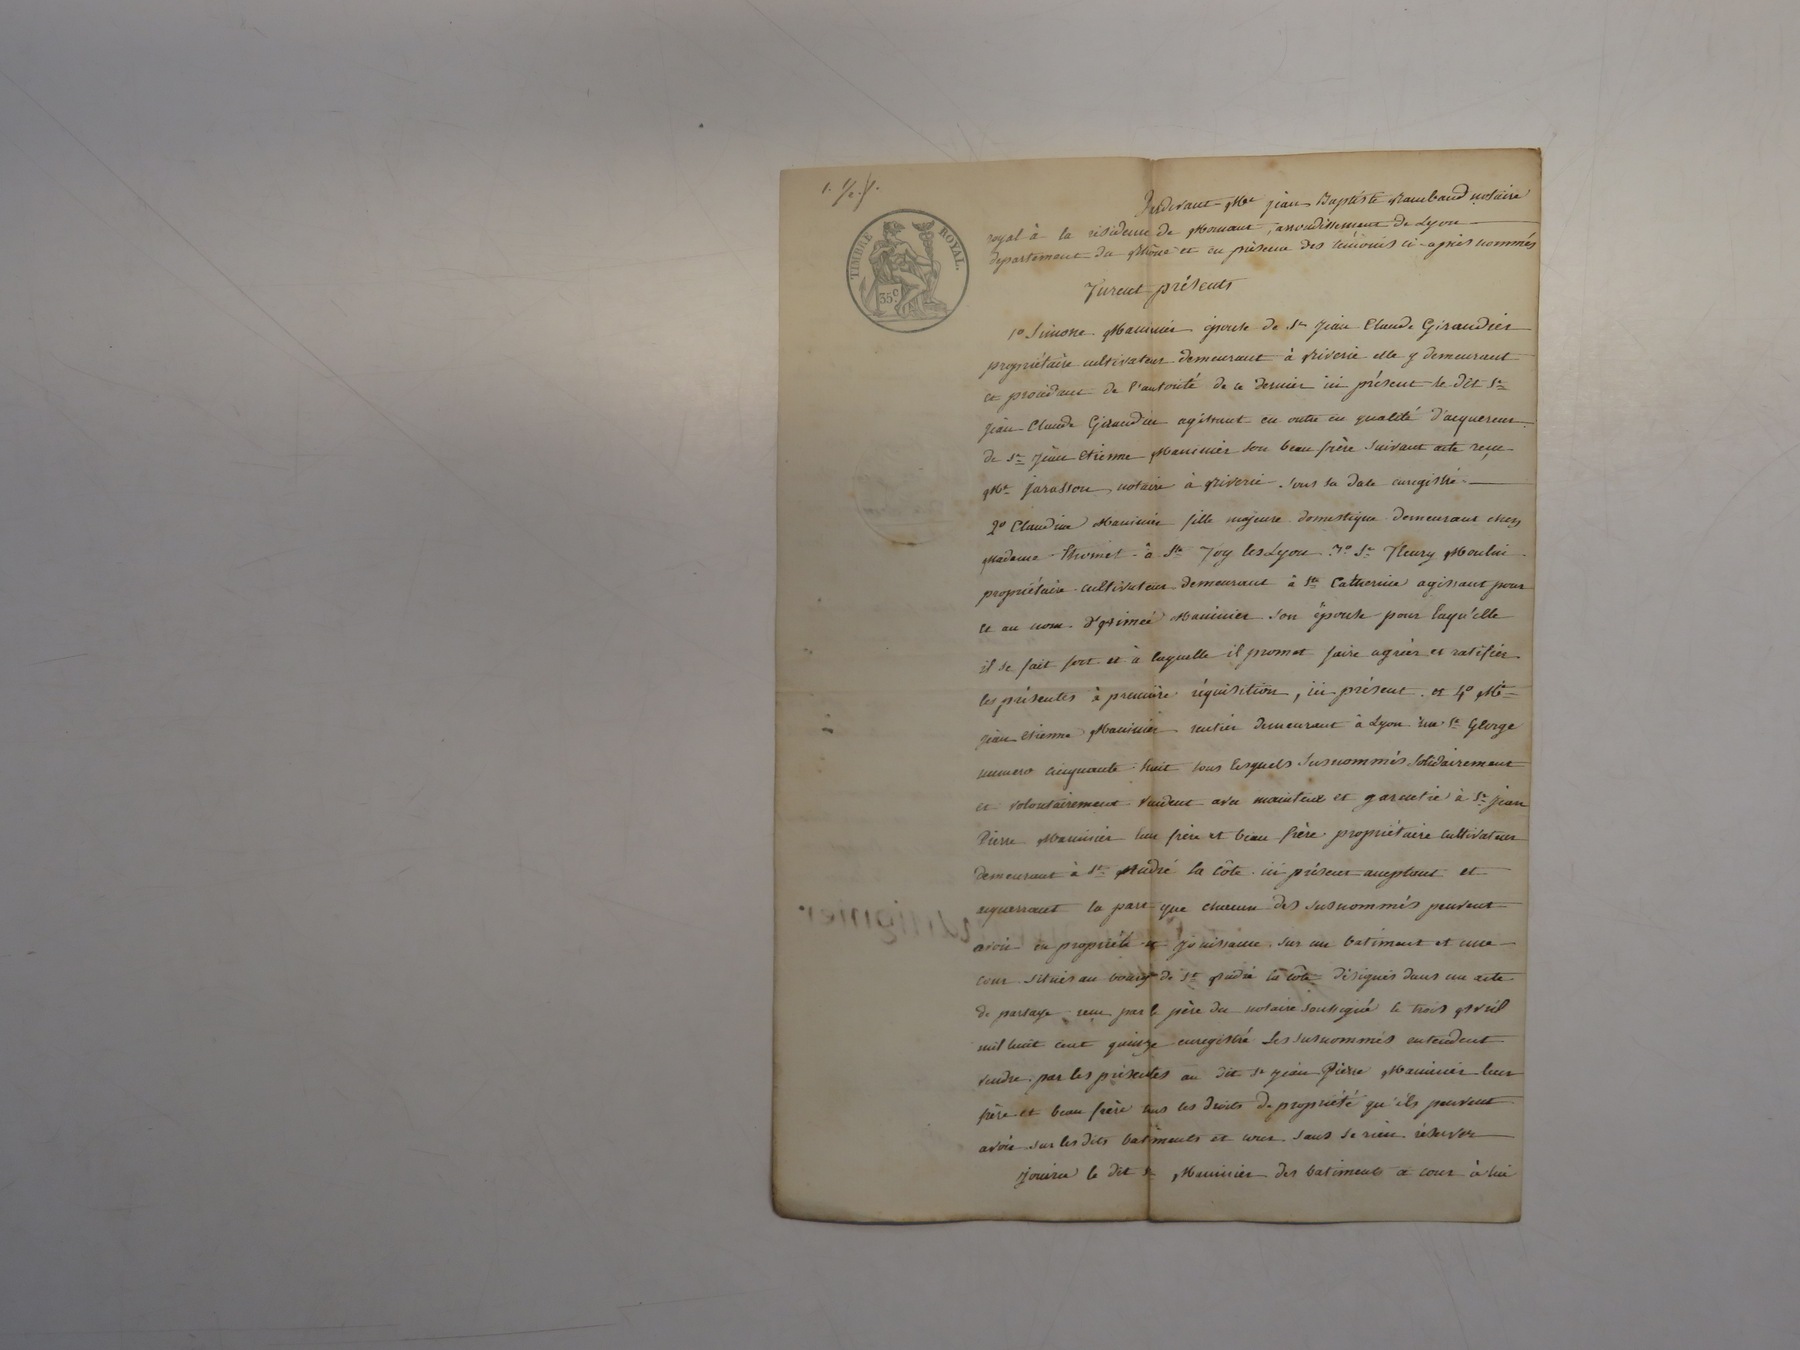 TIMBRE ROYAL.
35c
Pardevant Me jean Baptiste Rambaud notaire
royal à la résidence de Mornant, arrondissement de Lyon
département du Rhône et en présence des témoins ci-après nommés
Furent présents
1o Simone Maninier épouse de Sr Jean Claude Giraudier
propriétaire cultivateur demeurant à Riverie elle y demeurant
et procédant de l'autorité de ce dernier ici présent le dit Sr
jean Claude Giraudier agissant en outre en qualité d'acquereur
de Sr Jean Etienne Maninier son beau frère suivant acte reçu
Me Jarasson notaire à Riverie sous sa date enregistré.
2o Claudine Maninier fille majeure domestique demeurant chez
Madame Thomet à Ste Foy les Lyon 3o Sr Fleury Moulin
propriétaire cultivateur demeurant à Ste Catherine agissant pour
et au nom d'Aimée Maninier son épouse pour laqu'elle
il se fait fort et à laquelle il promet faire agréer et ratifier
les présentes à première réquisition, ici présent et 4o Me
jean Etienne Maninier rentier demeurant à Lyon rue St George
numero cinquante huit tous lesquels susnommés solidairement
et volontairement vendent avec mainteue et garentie à Sr jean
Pierre Maninier leur frère et beau frère propriétaire cultivateur
demeurant à St André la côte ici présent acceptant et
acquerrant la part que chacun des susnommés peuvent
avoir en propriété et jouissance sur un batiment et une
cour situés au bourg de St André la côte désignés dans un acte
de partage reçu par le père du notaire soussigné le trois Avril
mil huit cent quinze enregistré Les susnommés entendent
vendre par les présentes au dit Sr jean Pierre Maninier leur
frère et beau frère tous les droits de propriété qu'ils peuvent
avoir sur les dits batiments et cour sans se rien réserver
Jouira le dit Sr Maninier des batiments et cour à lui